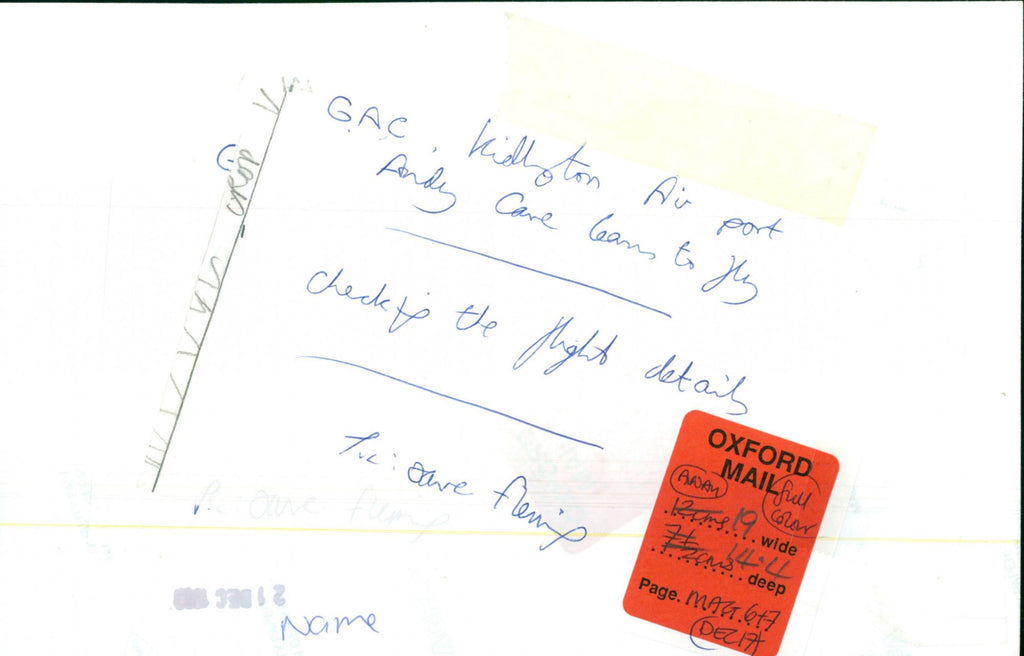 G.A.C. Kidlington Air port
Andy Cave learns to fly
checks the flight details
Pic: Dave Fleming
P.c: Dave Fleming
CROP
21 DEC
Name
OXFORD
MAIL
AWAY
full
color
12 cms 19 wide
7½ cms 14.4 deep
Page. MAG 6+7
DEZIA